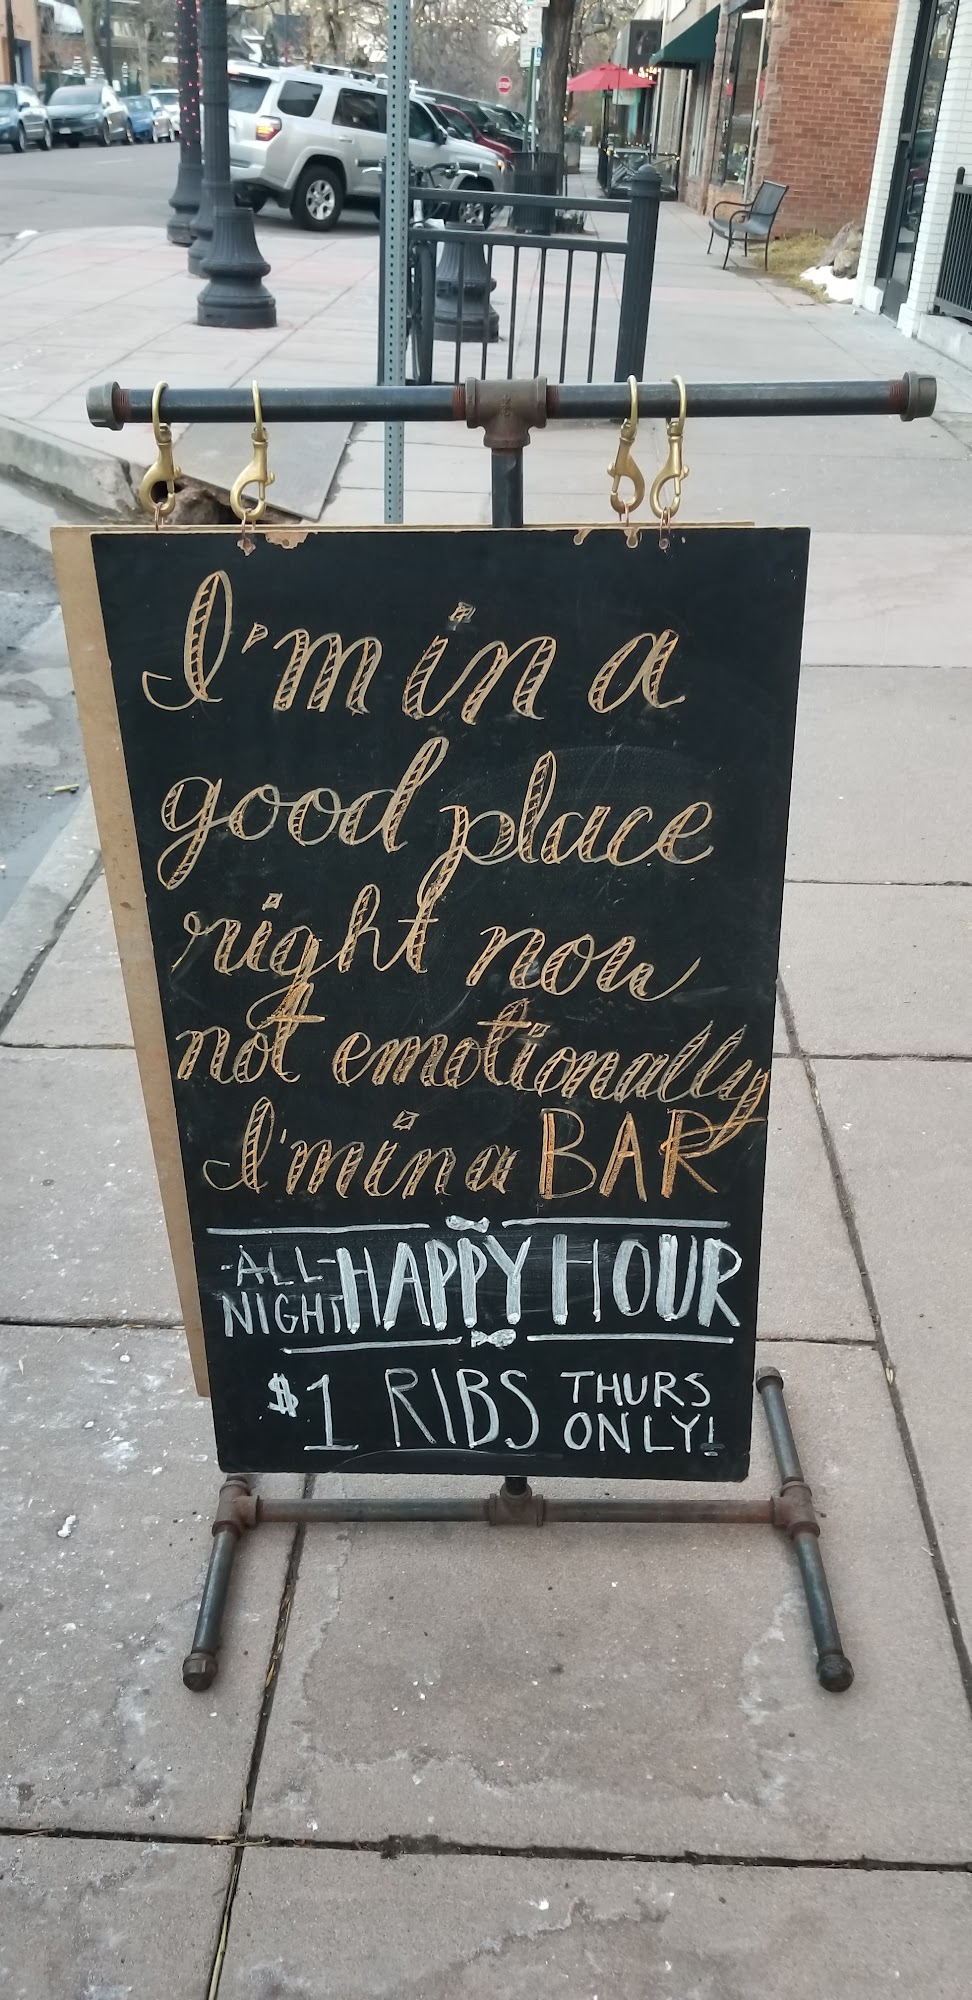 I'm in a
good place
right now
not emotionally
I'm in a BAR
-ALL-
NIGHT HAPPY HOUR
$1 RIBS THURS
ONLY!